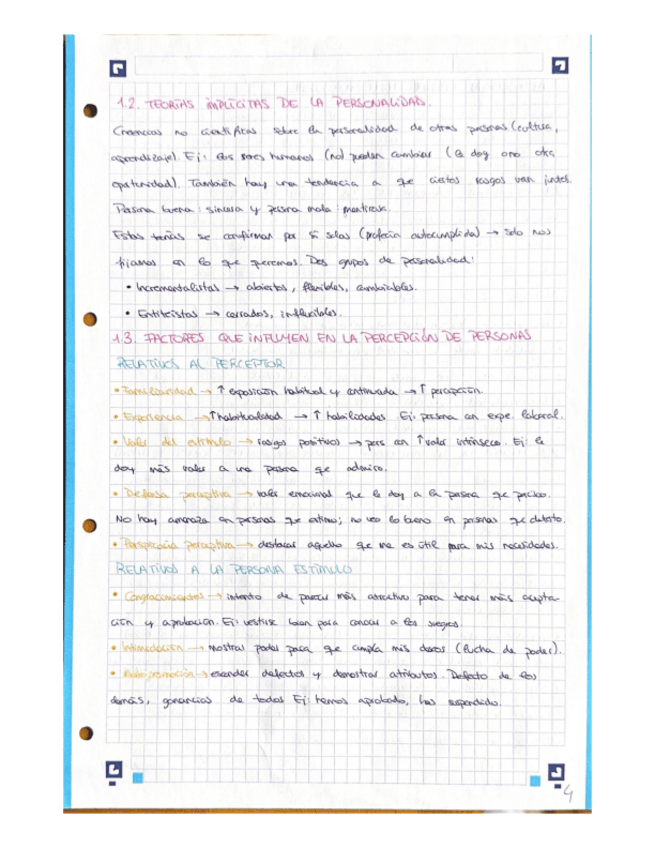 1.2. TEORÍAS IMPLÍCITAS DE LA PERSONALIDAD.
Creencias no científicas sobre la personalidad de otras personas (cultura,
aprendizaje). Ej: los seres humanos (no) pueden cambiar (le doy one otra
oportunidad). También hay una tendencia a que ciertos rasgos van juntos.
Persona buena: sincera y persona mala: mentirosa.
Estas teorías se confirman por si solas (profecía autocumplida) → solo nos
fijamos en lo que queremos. Dos grupos de personalidad:
• Incrementalistas → abiertos, flexibles, cambiables.
• Entiteistas → cerrados, inflexibles.
1.3. FACTORES QUE INFLUYEN EN LA PERCEPCIÓN DE PERSONAS
RELATIVOS AL PERCEPTOR
• Familiaridad → ↑ exposición habitual y continuada → ↑ percepción.
• Experiencia → ↑ habitualidad → ↑ habilidades Ej: persona con expe. laboral.
• Valor del estímulo → rasgos positivos → pers con ↑ valor intrínseco. Ej: le
doy más valor a una persona que admiro.
• Defensa perceptiva → valor emocional que le doy a la persona que percibo.
No hay amenaza en personas que estimo; no veo lo bueno en personas que detesto.
• Perspicacia perceptiva → destacar aquello que me es útil para mis necesidades.
RELATIVOS A LA PERSONA ESTÍMULO
• Congraciamiento → intento de parecer más atractivo para tener más acepta-
ción y aprobación. Ej: vestirse bien para conocer a los suegros.
• Intimidación → mostrar poder para que cumpla mis deseos (lucha de poder).
• Autopromoción → esconder defectos y demostrar atributos. Defecto de los
demás, ganancias de todos Ej: hemos aprobado, has suspendido.
4